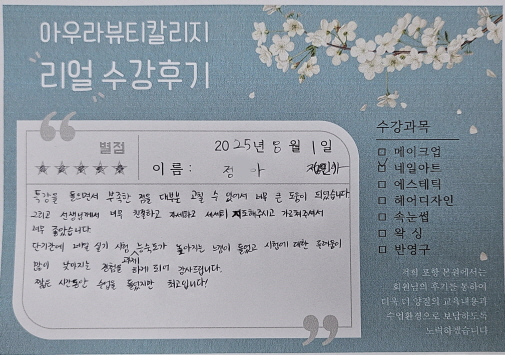 아우라뷰티칼리지
리얼 수강후기
별점
2025년 8월 1일
이름 : 정 아
수강과목
메이크업
네일아트
에스테틱
헤어디자인
속눈썹
왁 싱
반영구
특강을 들으면서 부족한 점을 대부분 고칠 수 있어서 너무 큰 도움이 되었습니다
그리고 선생님께서 너무 친절하고 자세하고 세세히 지도해주시고 가르쳐주셔서
너무 좋았습니다.
단기간에 네일 실기 시험 능숙도가 높아지는 느낌이 들었고 시험에 대한 두려움이
많이 낮아지는 경험을 하게 되어 감사드립니다.
짧은 시간동안 수업을 들었지만 최고입니다!
저희 포항 본원에서는
회원님의 후기를 통하여
더욱 더 양질의 교육내용과
수업환경으로 보답하도록
노력하겠습니다